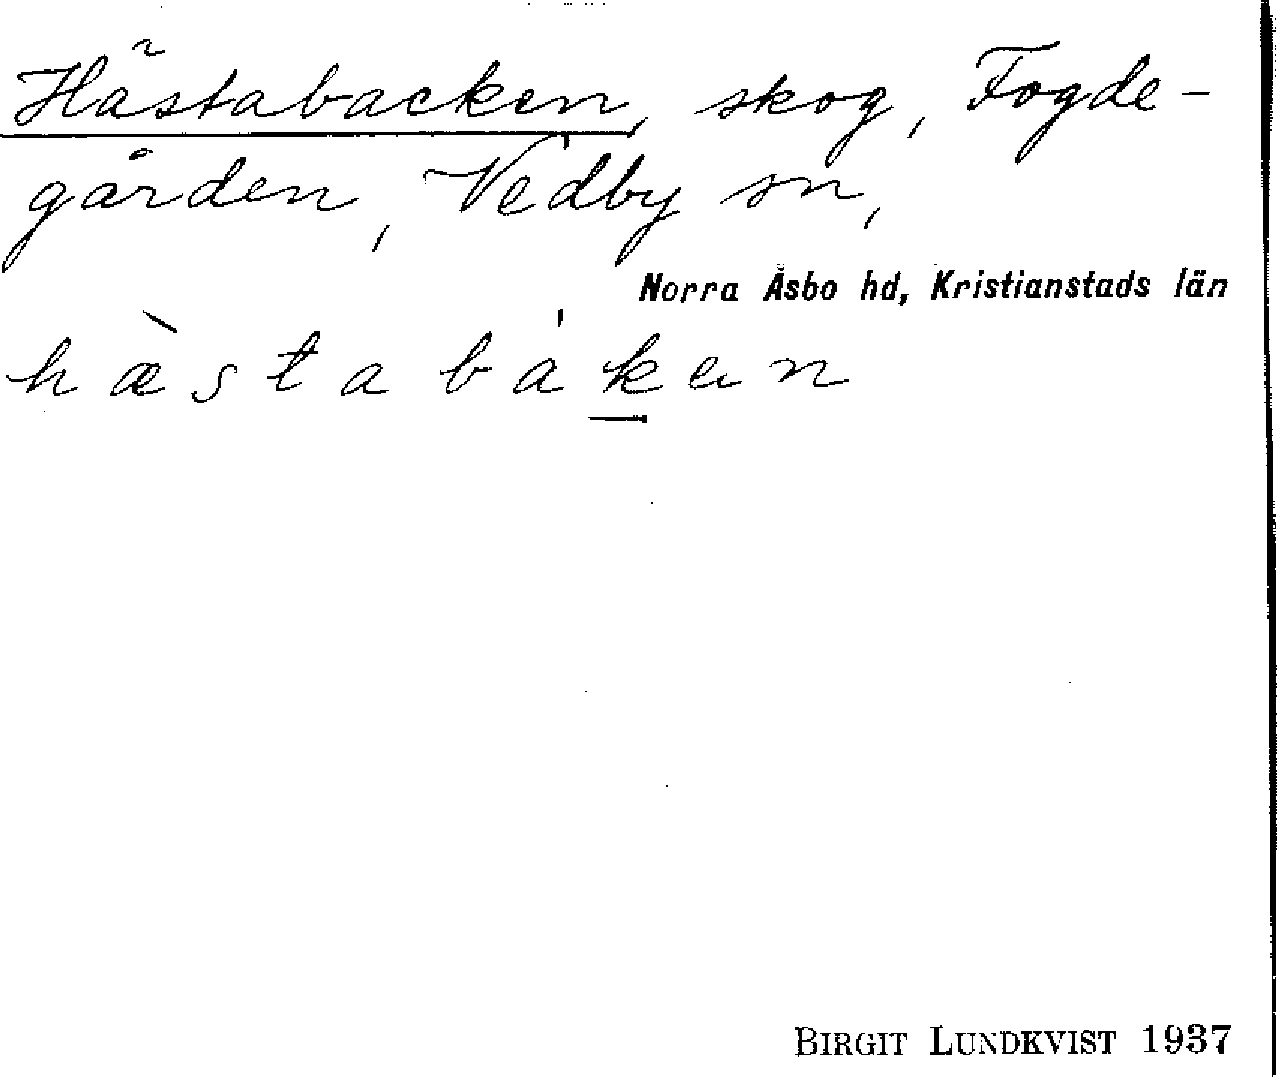 Hästabacken, skog, Fogde-
gården, Vedby sn,
Norra Åsbo hd, Kristianstads län
hæ̀stabákan
BIRGIT LUNDKVIST 1937